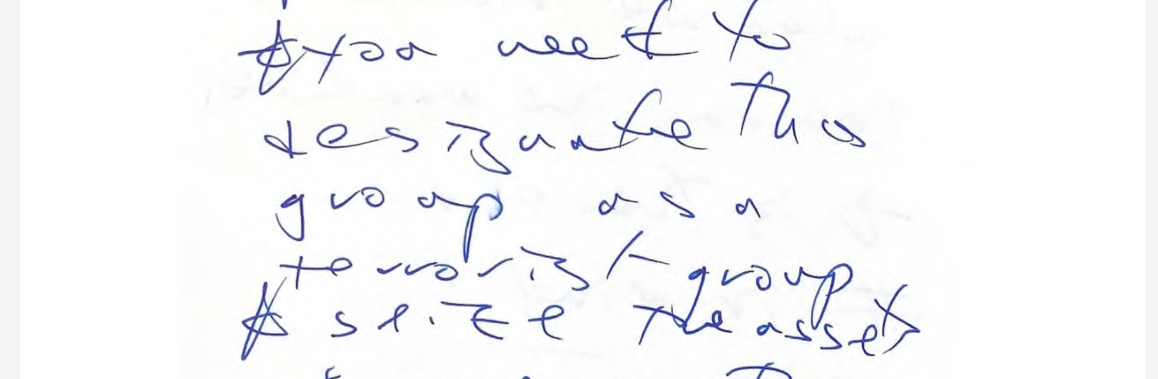 * you need to
designate this
group as a
terrorist group
* seize the assets